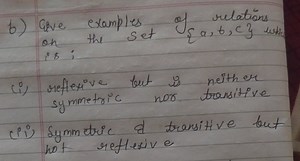 b) Give examples of relations
on the set {a, b, c} which
is ;
(i) reflexive but is neither
symmetric nor transitive
(ii) Symmetric & transitive but
not reflexive